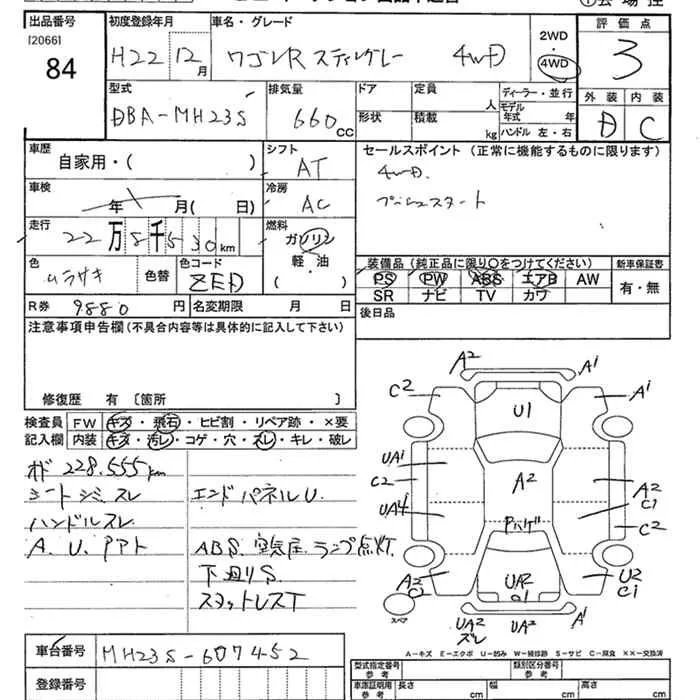 出品番号
[2066]
84
初度登録年月
H22 12月
車名・グレード
ワゴンR スティングレー 4WD
2WD
・
4WD
評価点
3
型式
DBA-MH23S
排気量
660cc
ドア
形状
定員
人
積載
kg
ディーラー・並行
モデル
年式 年
ハンドル 左・右
外装 内装
D C
車歴
自家用・( )
シフト
AT
車検
年 月( 日)
冷房
AC
走行
22万8千530km
燃料
ガソリン
軽・油
色
ムラサキ
色替
色コード
ZED
R券 9880円
名変期限 月 日
セールスポイント(正常に機能するものに限ります)
4WD.
プッシュスタート
装備品(純正品に限り〇をつけてください)
PS PW ABS エアB AW
SR ナビ TV カワ
新車保証書
有・無
後日品
注意事項申告欄(不具合内容等は具体的に記入して下さい)
修復歴 有 〔箇所 〕
検査員
記入欄
FW キズ・飛石・ヒビ割・リペア跡・×要
内装 キズ・汚レ・コゲ・穴・スレ・キレ・破レ
オド 228.555km
シートシミ スレ
ハンドルスレ
A. U. Pアト
エンドパネルU.
ABS. 空気圧ランプ点灯
下廻りS
スタットレスT
A2 A1
C2 A1
U1
UA1
C2
A2
A2
C1
UA4
C2
Pハゲ
A2
C2
UA2
C1
U2
C1
スペア
UA2
ズレ
UA2
A1
A-キズ E-エクボ U-凹み W-補修跡 S-サビ C-腐食 ××-交換済
車台番号 MH23S-607452
登録番号
型式指定番号
参考
類別区分番号
参考
車庫証明用
参考
長さ cm
幅 cm
高さ cm